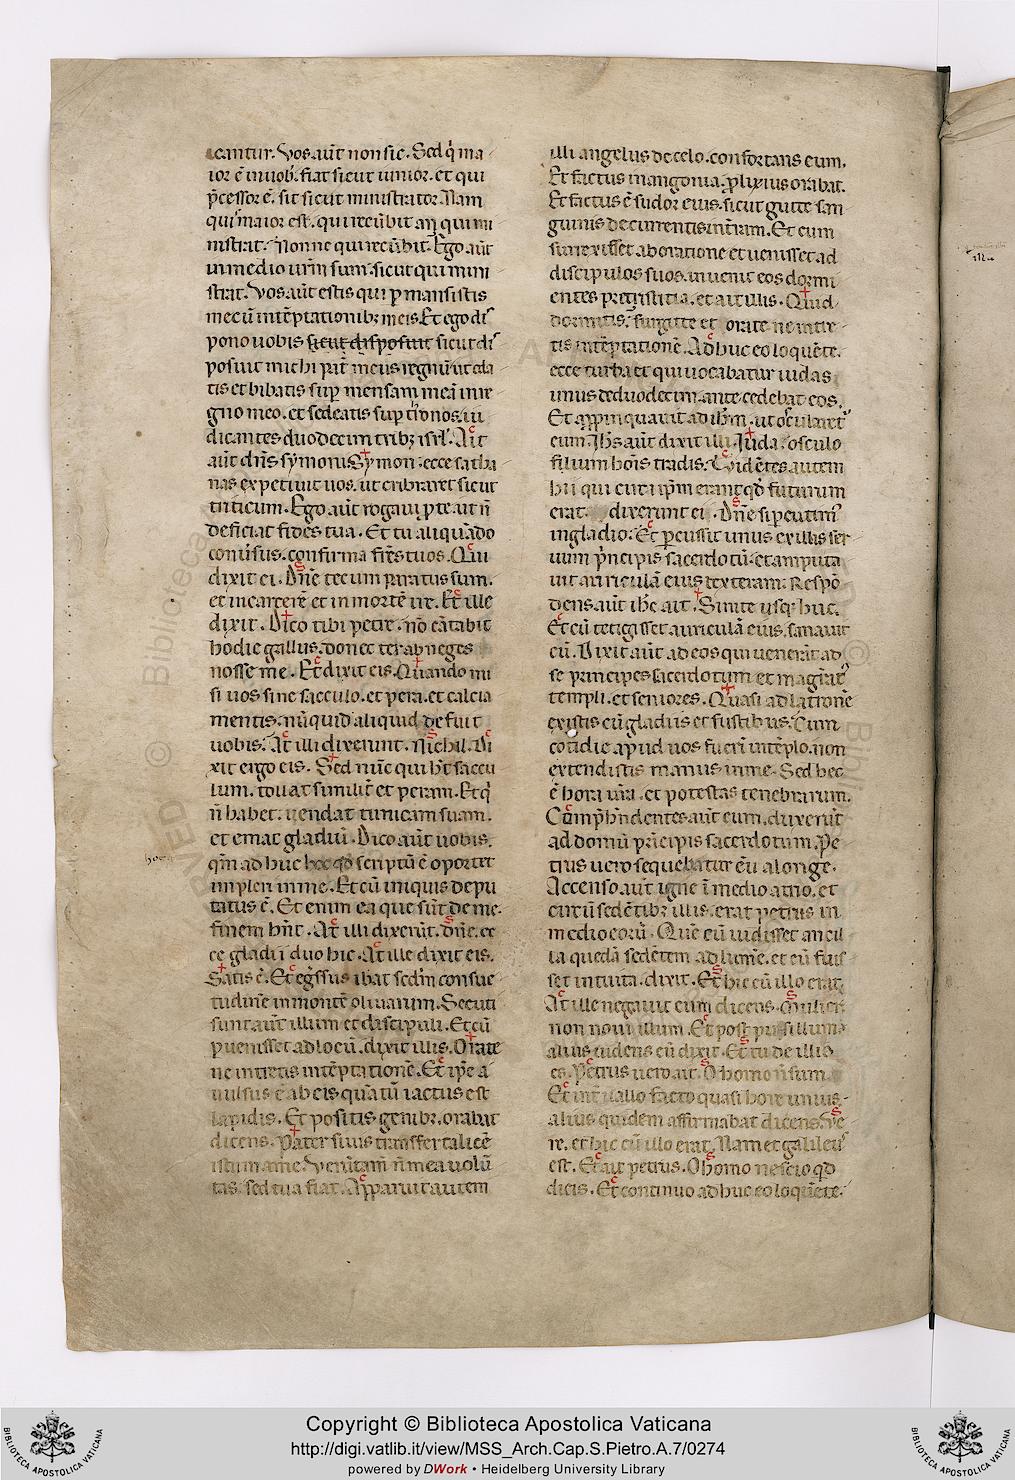 cantur. Vos aut̄ non sic. Sed qͥ ma
ior ē in uob̄. fiat sicut iunior. et qui
p̄cessor ē. sit sicut ministrator. Nam
quiˢ maior est. qui recūbit an̄ qui mi
nistrat. Nonne qui recūbit. Ego aūt
in medio ur̄m sum. sicut qui mini
strat. Vos aūt estis qui ꝑmansistis
mecū in tēptationibꝫ meis. Et ego di
pono uobis sicut disposuit sicut di
posuit michi pat̄ meus regnū ut eda
tis et bibatis suꝑ mensam meā in re
gno meo. et sedeatis suꝑ tronos. iu
dicantes duodecim tribꝫ isrl̄. Ait
aūt dn̄s symoni. Symon. ecce satha
nas expetiuit uos. ut cribraret sicut
triticum. Ego aūt rogaui ꝓ te ut n̄
deficiat fides tua. Et tu aliquādo
conūsus. confirma fr̄es tuos. Qui
dixit ei. Dn̄e tecum paratus sum.
et in carcerē et in mortē ire. Et ille
dixit. Dico tibi petre. nō cātabit
hodie gallus. donec ter abneges
nosse me. Et dixit eis. Quando mi
si uos sine sacculo. et pera. et calcia
mentis. nūquid aliquid defuit
uobis. At illi dixerunt. Nichil. Di
xit ergo eis. Sed nūc qui hт̄ saccu
lum. tollat similit̄ et peram. Et qͥ
n̄ habet. uendat tunicam suam.
et emat gladiū. Dico aūt uobis.
qm̄ ad huc hoc qd̄ scriptū ē oportet
impleri in me. Et cū iniquis depu
tatus ē. Et enim ea que sūt de me.
finem hn̄t. At illi dixerūt. dn̄e. ec
ce gladii duo hic. At ille dixit eis.
Satis ē. Et egr̄ssus ibat sedm̄ consue
tudinē in montē oliuarum. Secuti
sunt aūt illum et discipuli. Et cū
ꝑuenisset ad locū. dixit illis. Orate
ne intretis in tēptationē. Et ip̄e a
uulsus ē ab eis quātū iactus est
lapidis. Et positis genibꝫ. orabat
dicens. Pater si uis transfer calicē
istum a me. Verūtam̄ n̄ mea uolū
tas. sed tua fiat. Apparuit autem
hoc
illi angelus de celo. confortans eum.
Et factus in angonia. ꝓlixius orabat.
Et factus ē sudor eius. sicut gutte san
guinis decurrentis in t̄ram. Et cum
surrexisset ab oratione et uenisset ad
discipulos suos. inuenit eos dormi
entes pre tristitia. et ait illis. Quid
dormitis. surgite et orate ne intre
tis in tēptationē. Ad huc eo loquēte.
ecce turba et qui uocabatur iudas
unus de duodecim. ante cedebat eos.
Et appinquauit ad ih̄m. ut oscularet
eum. Ih̄s aūt dixit illi. Iuda. osculo
filium hoīs tradis. Vidētes autem
hii qui circa ip̄m erant qd̄ futurum
erat. dixerunt ei. Dn̄e si ꝑcutimᵘ
in gladio. Et ꝑcussit unus ex illis ser
uum p̄ncipis sacerdotū. et amputa
uit auriculā eius dexteram. Respō
dens aūt ih̄c ait. Sinite usqꝫ huc.
Et cū tetigisset auriculā eius. sanauit
eū. Dixit aūt ad eos qui uenerāt ad
se principes sacerdotum et magr̄at
templi. et seniores. Quasi ad latronē
existis cū gladiis et fustibus. Cum
cotidie apud uos fuerī in tēplo. non
extendistis manus in me. Sed hec
ē hora ur̄a. et potestas tenebrarum.
Comph̄ndentes aūt eum. duxerūt
ad domū prīcipis sacerdotum. Pe
trus uero sequebatur eū a longe.
Accenso aūt igne ī medio atrio. et
circū sedētibꝫ illis. erat petrus in
medio eorū. Quē cū uidisset ancil
la quedā sedētem ad lumē. et eū fuis
set intuita. dixit. Et hic cū illo erat.
At ille negauit eum dicens. Mulier
non noui illum. Et post pusillum
alius uidens eū dixit. Et tu de illis
es. Petrus uero ait. O homo n̄ sum.
Et int̄uallo facto quasi hore unius.
alius quidem affirmabat dicens. Ve
re. et hic cū illo erat. Nam et galileuˢ
est. Et ait petrus. O homo nescio qd̄
dicis. Et continuo ad huc eo loquēte.
Copyright © Biblioteca Apostolica Vaticana
http://digi.vatlib.it/view/MSS_Arch.Cap.S.Pietro.A.7/0274
powered by DWork • Heidelberg University Library
BIBLIOTECA APOSTOLICA VATICANA
BIBLIOTECA APOSTOLICA VATICANA